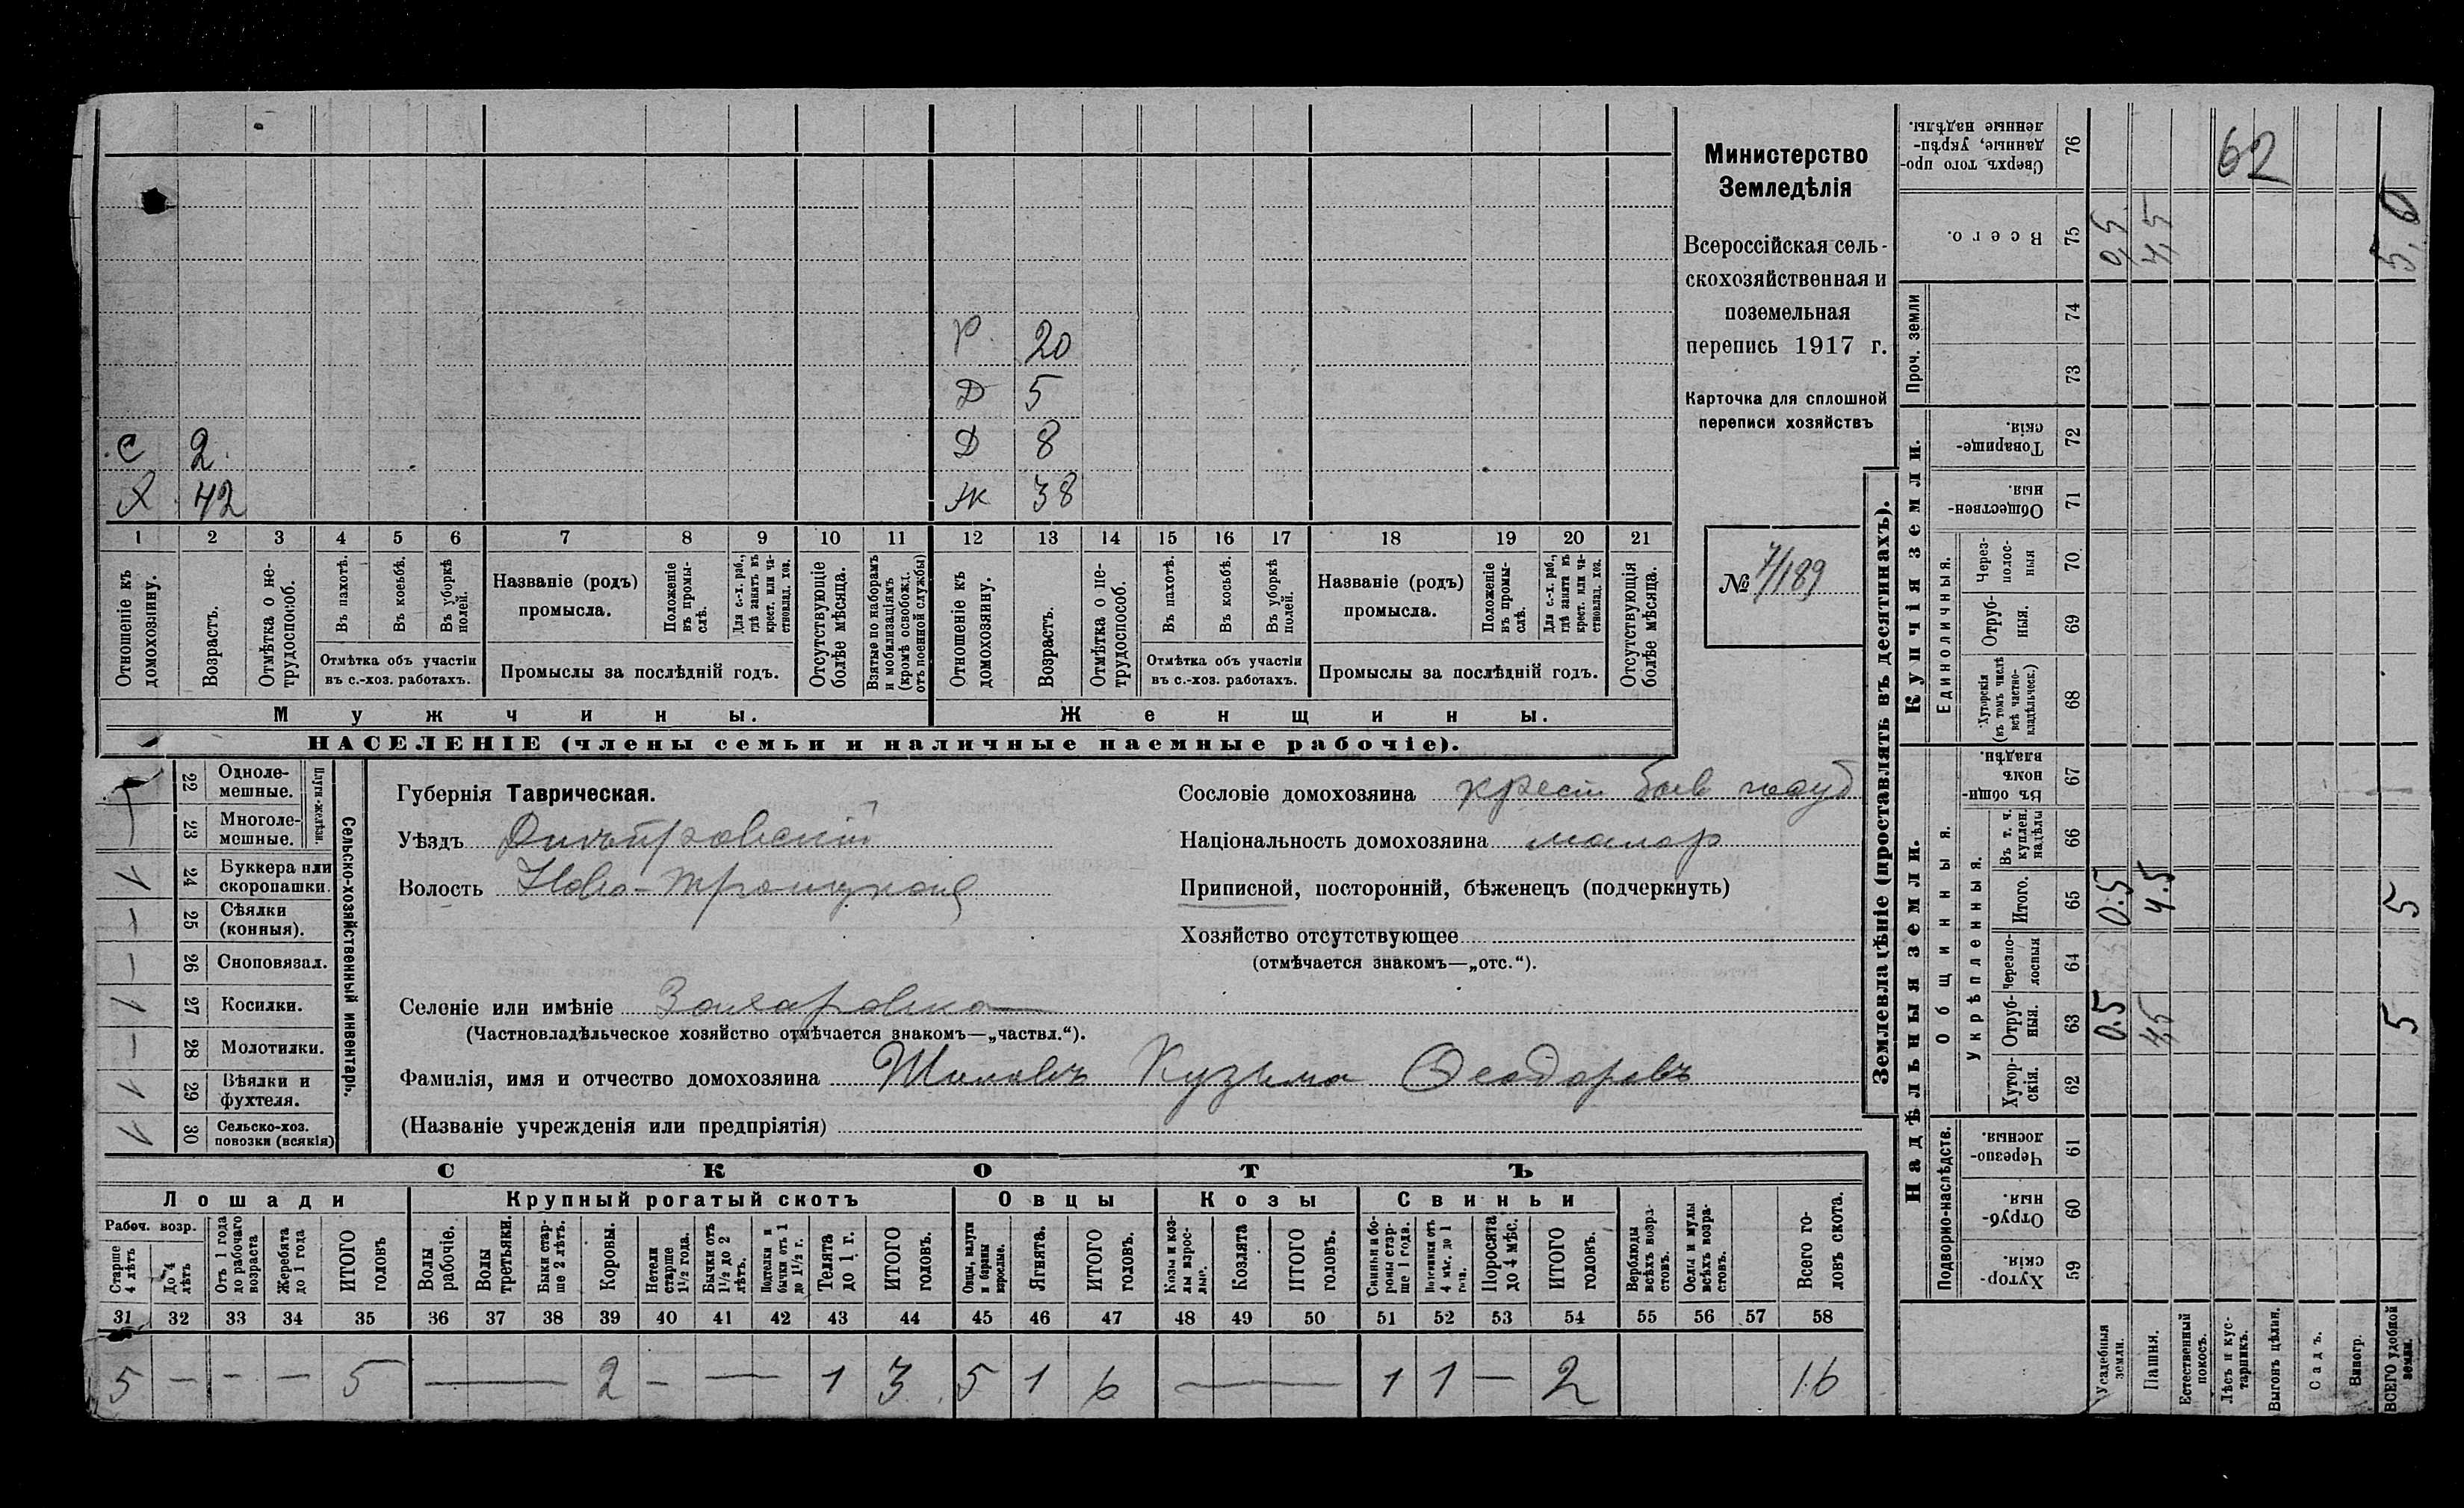 Р. 20
Д 5
С 2. Д 8
Х 42 Ж 38
1 2 3 4 5 6 7 8 9 10 11 12 13 14 15 16 17 18 19 20 21
Отношеніе къ домохозяину.
Возрастъ.
Отмѣтка о нетрудоспособ.
Въ пахотѣ.
Въ косьбѣ.
Въ уборкѣ полей.
Отмѣтка объ участіи
въ с.-хоз. работахъ.
Названіе (родъ)
промысла.
Положеніе въ промыслѣ.
Для с.-х. раб., гдѣ занятъ въ крест. или частновлад. хоз.
Промыслы за послѣдній годъ.
Отсутствующіе болѣе мѣсяца.
Взятые по наборамъ и мобилизаціямъ (кромѣ освобожд. отъ военной службы)
Отношеніе къ домохозяину.
Возрастъ.
Отмѣтка о нетрудоспособ.
Въ пахотѣ.
Въ косьбѣ.
Въ уборкѣ полей.
Отмѣтка объ участіи
въ с.-хоз. работахъ.
Названіе (родъ)
промысла.
Положеніе въ промыслѣ.
Для с.-х. раб., гдѣ занята въ крест. или частновлад. хоз.
Промыслы за послѣдній годъ.
Отсутствующія болѣе мѣсяца.
Мужчины. Женщины.
НАСЕЛЕНІЕ (члены семьи и наличные наемные рабочіе).
Министерство
Земледѣлія
Всероссійская сель-
скохозяйственная и
поземельная
перепись 1917 г.
Карточка для сплошной
переписи хозяйствъ
№ 7/189
Сельско-хозяйственный инвентарь.
Плуги желѣзн.
22 Одноле-
мешные.
23 Многоле-
мешные.
24 Буккера или
скоропашки.
25 Сѣялки
(конныя).
26 Сноповязал.
27 Косилки.
28 Молотилки.
29 Вѣялки и
фухтеля.
30 Сельско-хоз.
повозки (всякія)
Губернія Таврическая.
Уѣздъ Днѣпровскій
Волость Ново-Троицкая
Селеніе или имѣніе Захаровка
(Частновладѣльческое хозяйство отмѣчается знакомъ—„частвл.“).
Фамилія, имя и отчество домохозяина Шиловъ Кузьма Өеодоровъ
(Названіе учрежденія или предпріятія)
Сословіе домохозяина крест быв
Національность домохозяина малор
Приписной, посторонній, бѣженецъ (подчеркнуть)
Хозяйство отсутствующее
(отмѣчается знакомъ—„отс.“).
СКОТЪ
Лошади Крупный рогатый скотъ Овцы Козы Свиньи
Рабоч. возр.
Старше 4 лѣтъ
До 4 лѣтъ
Отъ 1 года до рабочаго возраста
Жеребята до 1 года
ИТОГО головъ
Волы рабочіе.
Волы третьяки.
Быки старше 2 лѣтъ.
Коровы.
Нетели старше 1½ года.
Бычки отъ 1½ до 2 лѣтъ.
Подтелки и бычки отъ 1 до 1½ г.
Телята до 1 г.
ИТОГО головъ.
Овцы, валухи и бараны взрослые.
Ягнята.
ИТОГО головъ.
Козы и козлы взрослые.
Козлята
ИТОГО головъ.
Свиньи и боровы старше 1 года.
Подсвинки отъ 4 мѣс. до 1 года.
Поросята до 4 мѣс.
ИТОГО головъ.
Верблюды всѣхъ возрастовъ.
Ослы и мулы всѣхъ возрастовъ.
Всего головъ скота.
31 32 33 34 35 36 37 38 39 40 41 42 43 44 45 46 47 48 49 50 51 52 53 54 55 56 57 58
5 — — — 5 — 2 — — 1 3 5 1 6 — 1 1 — 2 16
Землевладѣніе (проставлять въ десятинахъ).
Надѣльныя земли. Купчія земли.
Подворно-наслѣдств.
Общинныя.
Укрѣпленныя.
Единоличныя.
Проч. земли
76 Сверхъ того проданные, укрѣпленные надѣлы.
62
75 Всего. 0,5 4,5 5,0
74
73
72 Товарищескія.
71 Общественныя.
70 Черезполосныя
69 Отрубныя.
68 Хуторскія (въ томъ числѣ всѣ частновладѣльческ.)
67 Въ общинномъ владѣн.
66 Въ т. ч. куплен. надѣлы
65 Итого. 0.5 4.5 5
64 Черезполосныя
63 Отрубныя. 0.5 4,5 5
62 Хуторскія.
61 Черезполосныя.
60 Отрубныя.
59 Хуторскія.
Усадебныя земли.
Пашня.
Естественный покосъ.
Лѣсъ и кустарникъ.
Выгонъ цѣлин.
Садъ.
Виногр.
ВСЕГО удобной земли.